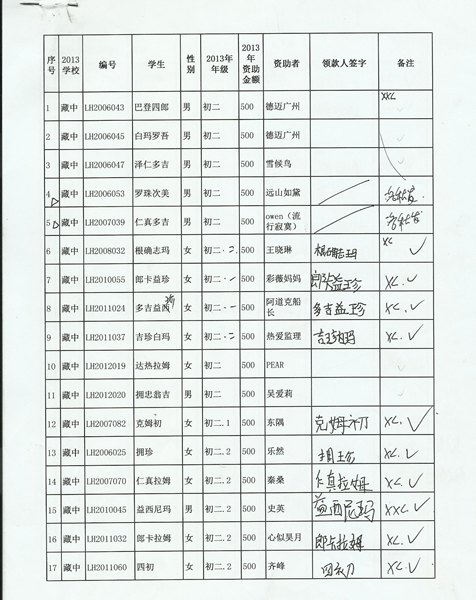 序号 2013学校 编号 学生 性别 2013年年级 2013年资助金额 资助者 领款人签字 备注
1 藏中 LH2006043 巴登四郎 男 初二 500 德迈广州
2 藏中 LH2006045 白玛罗吾 男 初二 500 德迈广州
3 藏中 LH2006047 泽仁多吉 男 初二 500 雪候鸟
4 藏中 LH2006053 罗珠次美 男 初二 500 远山如黛
5 藏中 LH2007039 仁真多吉 男 初二 500 owen（流行寂寞）
6 藏中 LH2008032 根确志玛 女 初二 500 王晓琳
7 藏中 LH2010055 郎卡益珍 女 初二 500 彩薇妈妈 郎卡益珍
8 藏中 LH2011024 多吉益西 女 初二 500 阿道克船长 多吉益珍
9 藏中 LH2011037 吉珍白玛 女 初二 500 热爱监理
10 藏中 LH2012019 达热拉姆 女 初二 500 PEAR
11 藏中 LH2012020 拥忠翁吉 男 初二 500 吴爱莉
12 藏中 LH2007082 克姆初 女 初二.1 500 东隅 克姆初
13 藏中 LH2006025 拥珍 女 初二.2 500 乐然
14 藏中 LH2007070 仁真拉姆 女 初二.2 500 秦桑 仁真拉姆
15 藏中 LH2010045 益西尼玛 男 初二.2 500 史英 益西尼玛
16 藏中 LH2011032 郎卡拉姆 女 初二.2 500 心似昊月 郎卡拉姆
17 藏中 LH2011060 四初 女 初二.2 500 齐峰 四初